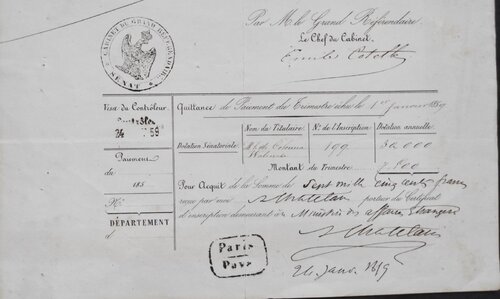 CABINET DU GRAND RÉFÉRENDAIRE
SENAT
Par M. le Grand Référendaire
Le Chef du Cabinet,
Visa du Contrôleur
24 59
Quittance de Paiement du Trimestre échu le 1er Janvier 1859
Nom du Titulaire
No. de l'Inscription
Dotation annuelle
Dotation Sénatoriale
de Colonna Walewski
199
30,000
Montant du Trimestre
7,500
Paiement
du
185
No.
DÉPARTEMENT
d
Pour Acquit de la Somme de Sept mille cinq cents francs
reçue par moi A Chatelain porteur du Certificat
d'inscription demeurant à Ministère des affaires étrangères
A Chatelain
Paris
Payé
24 janv. 1859